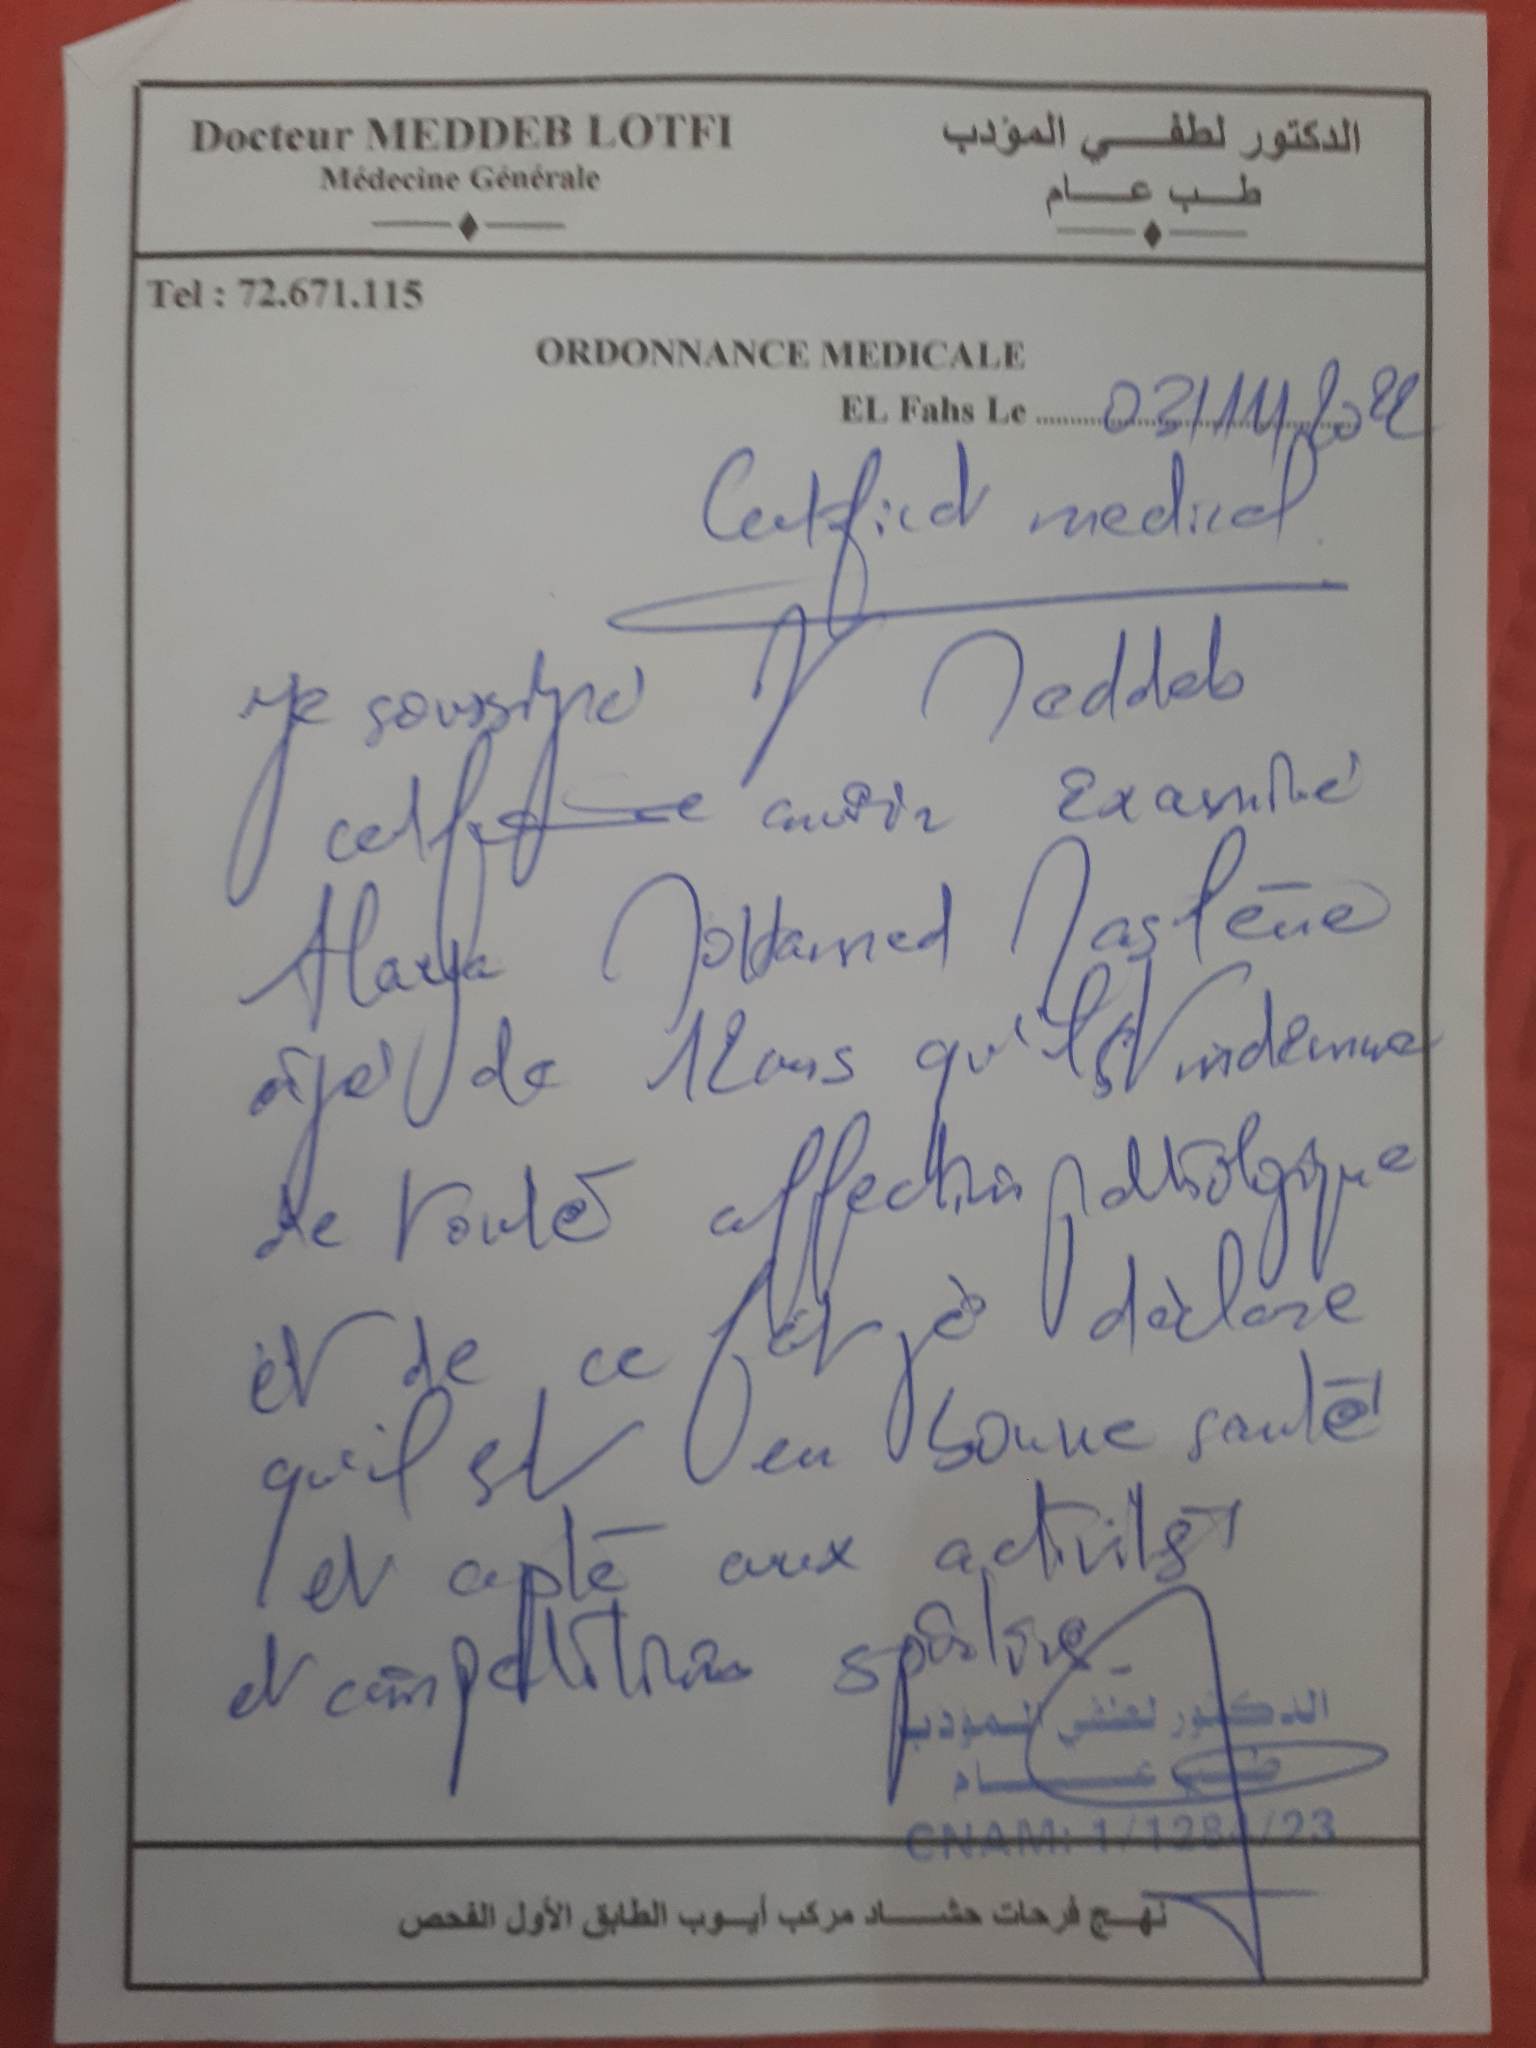 Docteur MEDDEB LOTFI
Médecine Générale
الدكتور لطفي المؤدب
طب عام
Tel : 72.671.115
ORDONNANCE MEDICALE
EL Fahs Le 03/11/2022
Certificat medical
Je soussigné Dr Meddeb
certifie avoir examiné
Mohamed
agé de 12 ans qu'il est indemne
de toute affection pathologique
et de ce fait je déclare
qu'il est en bonne santé
et apte aux activités
et compétitions sportive
الدكتور لطفي المؤدب
طب عام
CNAM: 1/128 /23
نهج فرحات حشاد مركب أيوب الطابق الأول الفحص